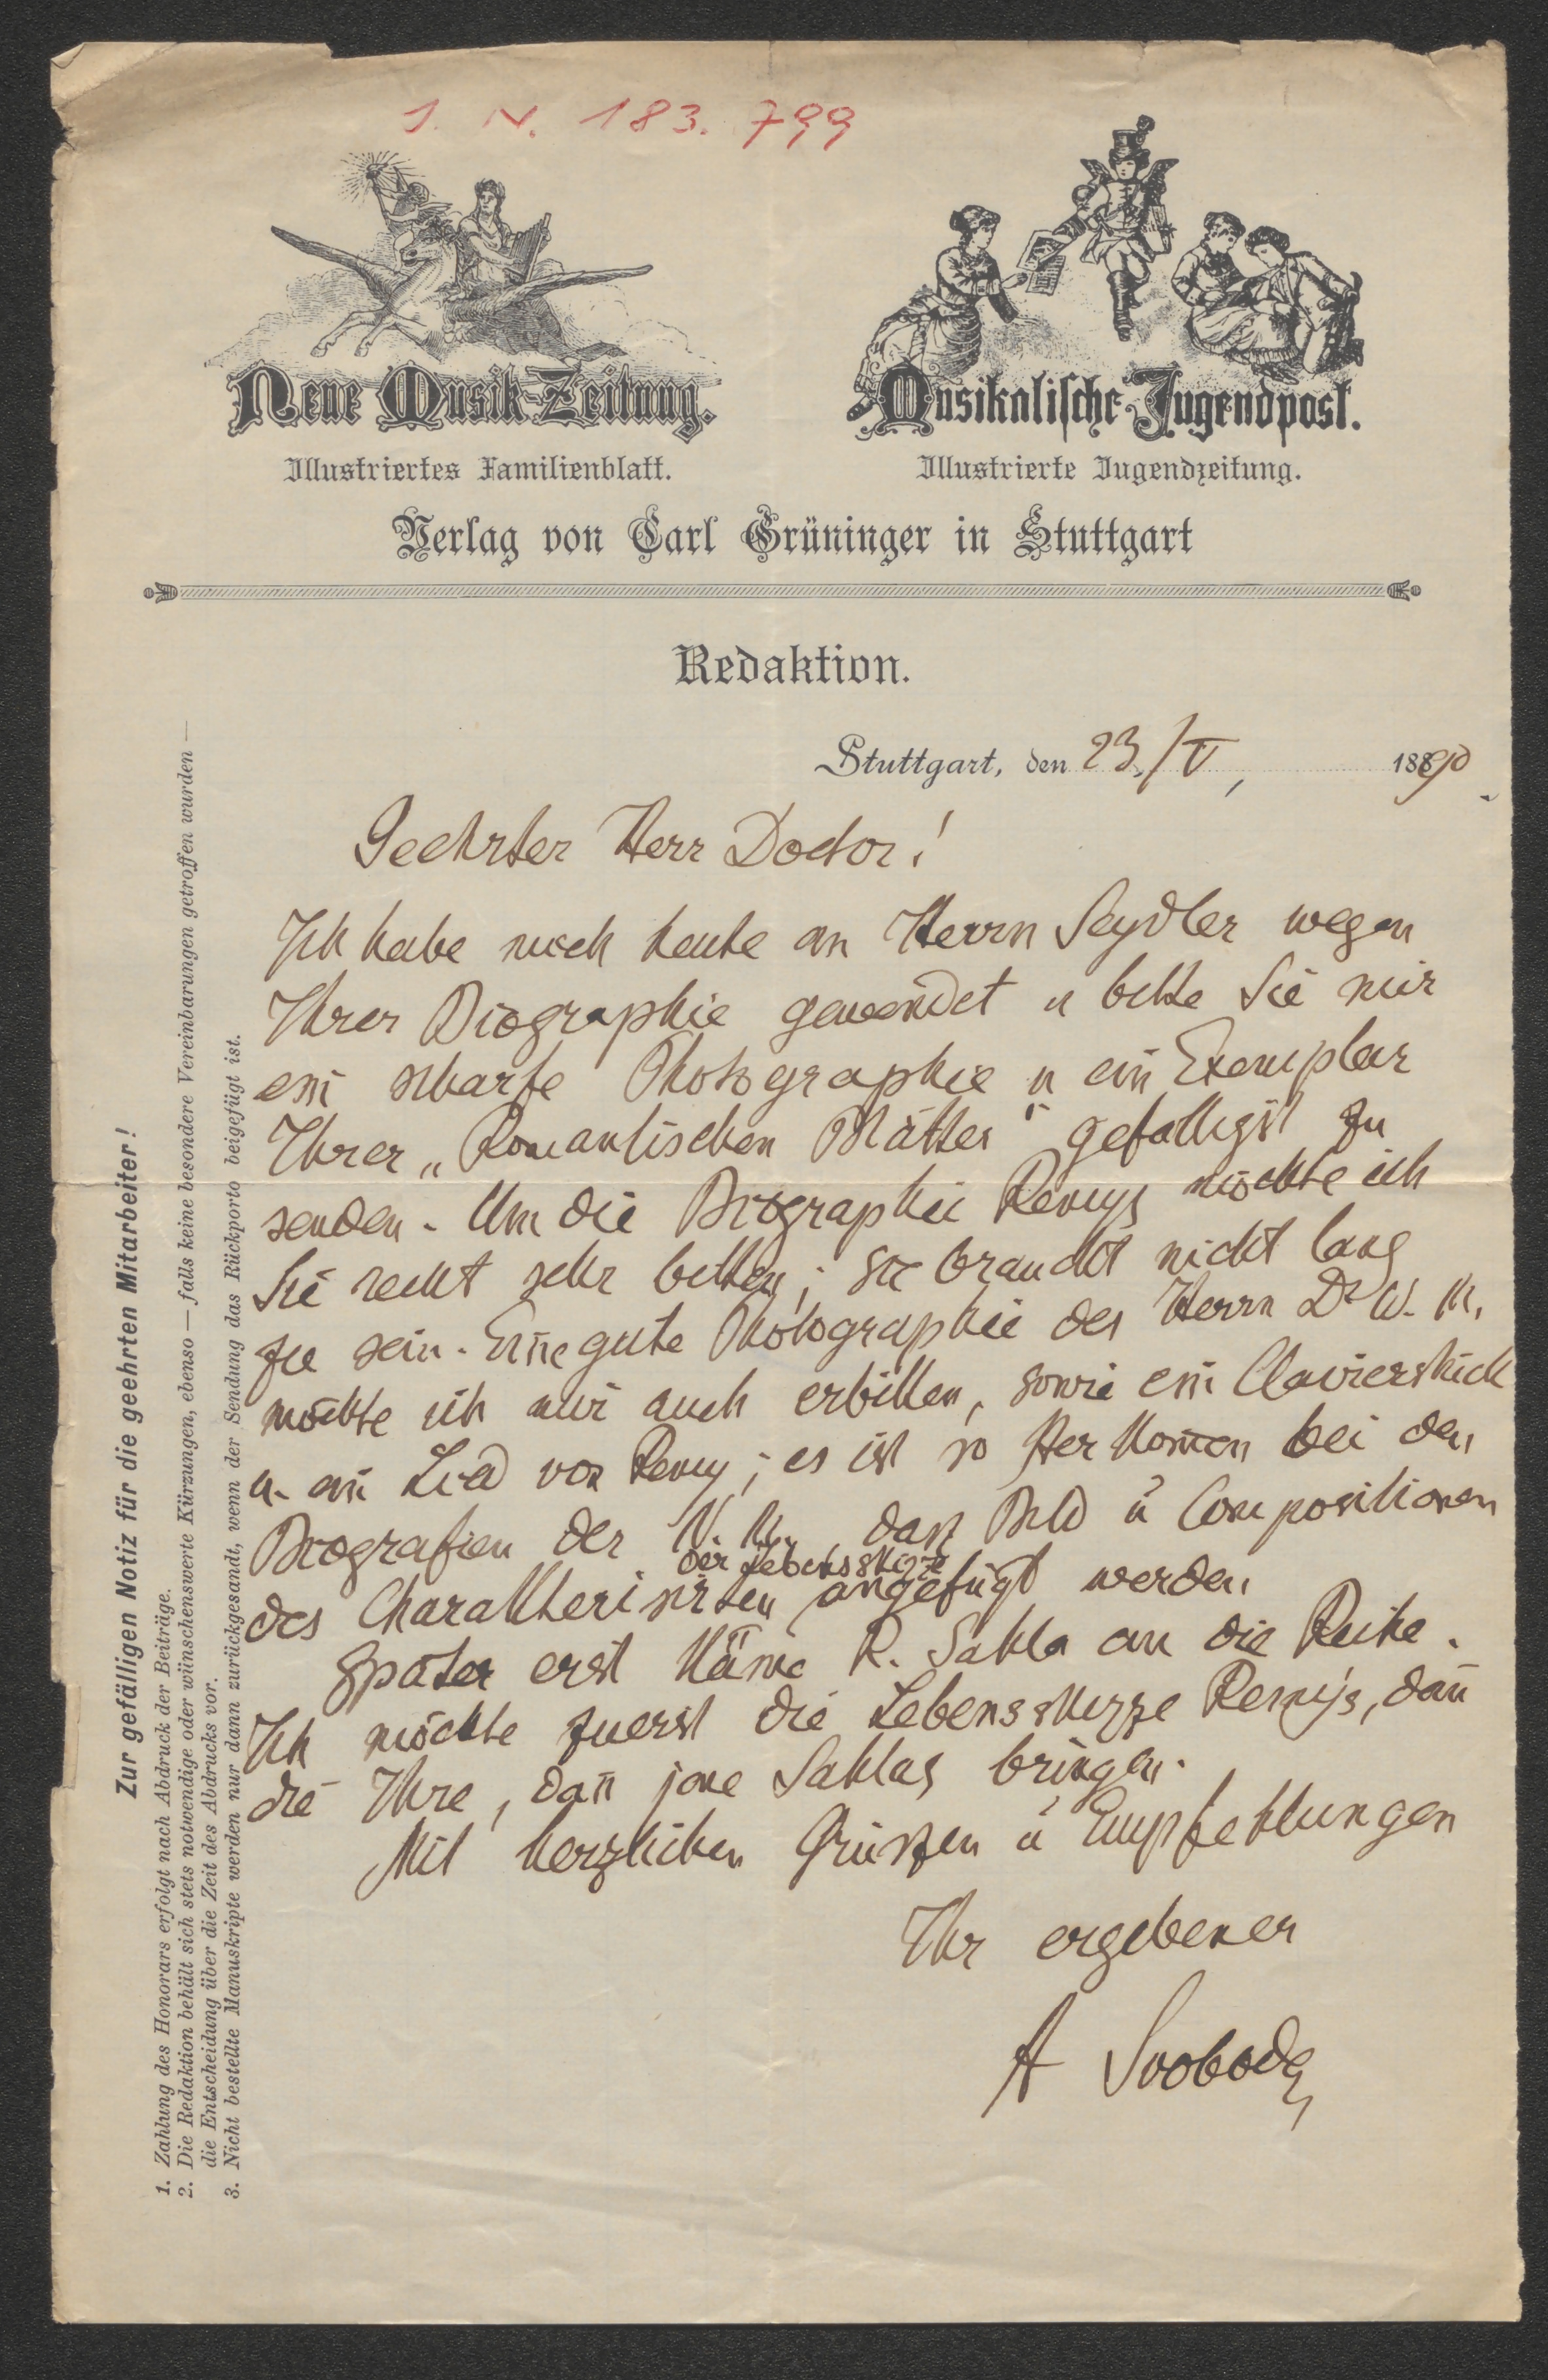 J. N. 183.799
Neue Musik-Zeitung.
Illustriertes Familienblatt.
Musikalische Jugendpost.
Illustrierte Jugendzeitung.
Verlag von Carl Grüninger in Stuttgart
Redaktion.
Stuttgart, den 23./V, 1890
Geehrter Herr Doctor!
Ich habe mich heute an Herrn Seydler wegen
Ihrer Biographie gewendet u bitte Sie mir
eine scharfe Photographie u ein Exemplar
Ihrer „Romantischen Blätter" gefälligst zu
senden. Um die Biographie Remys möchte ich
Sie recht sehr bitten; sie braucht nicht lang
zu sein. Eine gute Photographie des Herrn Dr W. M.
möchte ich mir auch erbitten, sowie ein Clavierstück
u. ein Lied von Remy; es ist so Herkom̅en bei den
Biografien der N. M. dass Bild u Compositionen
des Charakterisirten der Lebensskizze angefügt werden
Später erst käme R. Sahla an die Reihe.
Ich möchte zuerst die Lebensskizze Remy's, dan̅
die Ihre, dan̅ jene Sahlas bringen.
Mit herzlichen Grüssen u Empfehlungen
Ihr ergebener
A Svoboda
Zur gefälligen Notiz für die geehrten Mitarbeiter!
1. Zahlung des Honorars erfolgt nach Abdruck der Beiträge.
2. Die Redaktion behält sich stets notwendige oder wünschenswerte Kürzungen, ebenso — falls keine besondere Vereinbarungen getroffen wurden —
die Entscheidung über die Zeit des Abdrucks vor.
3. Nicht bestellte Manuskripte werden nur dann zurückgesandt, wenn der Sendung das Rückporto beigefügt ist.